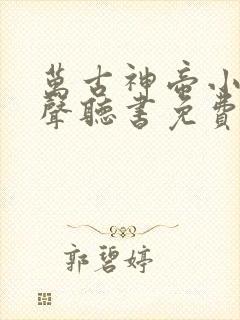 萬古神帝小
聲聽書免費
郭碧婷